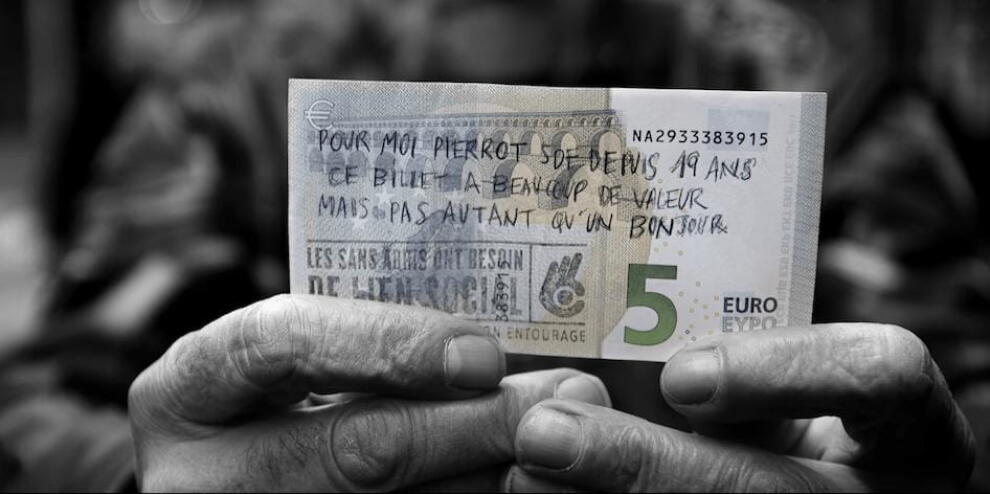 NA2933383915
POUR MOI PIERROT SDF DEPUIS 19 ANS
CE BILLET A BEAUCOUP DE VALEUR
MAIS PAS AUTANT QU'UN BONJOUR
LES SANS ABRIS ONT BESOIN
DE LIEN SOCIAL
N ENTOURAGE
5
EURO
ΕΥΡΩ